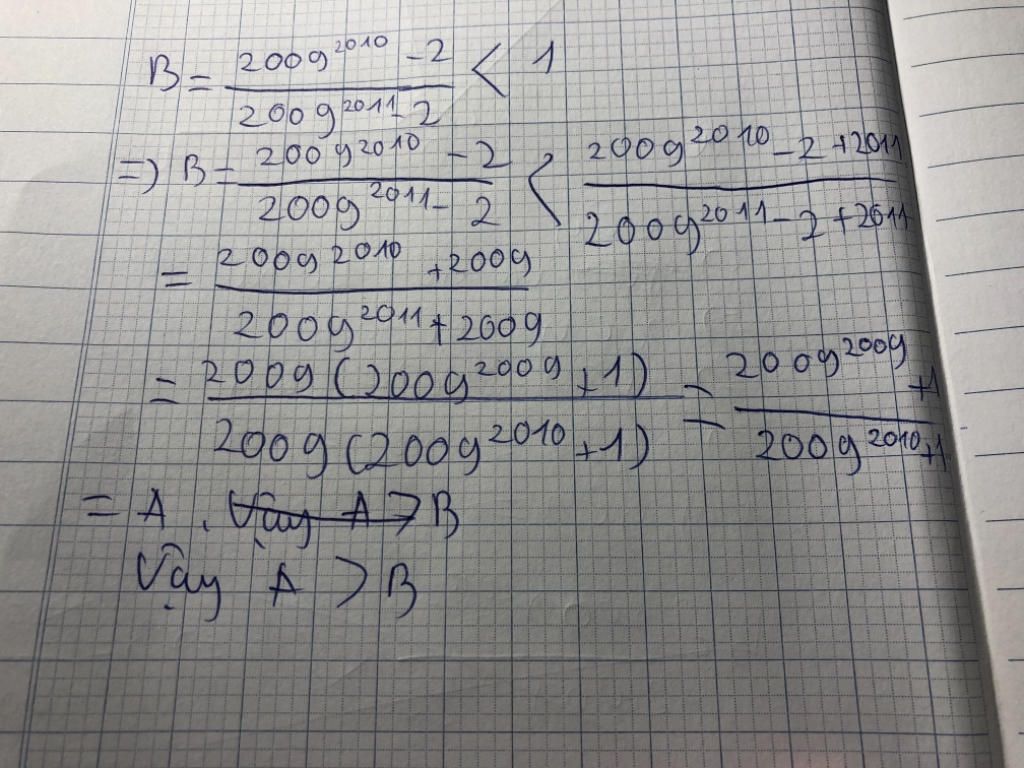 B = \frac{2009^{2010} - 2}{2009^{2011} - 2} < 1
=) B = \frac{2009^{2010} - 2}{2009^{2011} - 2} < \frac{2009^{2010} - 2 + 2011}{2009^{2011} - 2 + 2011}
= \frac{2009^{2010} + 2009}{2009^{2011} + 2009}
= \frac{2009(2009^{2009} + 1)}{2009(2009^{2010} + 1)} = \frac{2009^{2009} + 1}{2009^{2010} + 1}
= A . Vậy A > B
Vậy A > B